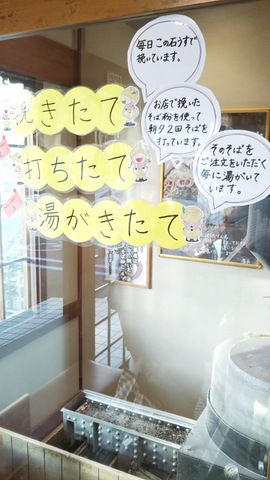 毎日 この石うすで
挽いています。
挽きたて
お店で挽いた
そば粉を使って
朝夕2回そばを
打っています。
打ちたて
そのそばを
ご注文をいただく
毎に湯がいて
います。
湯がきたて